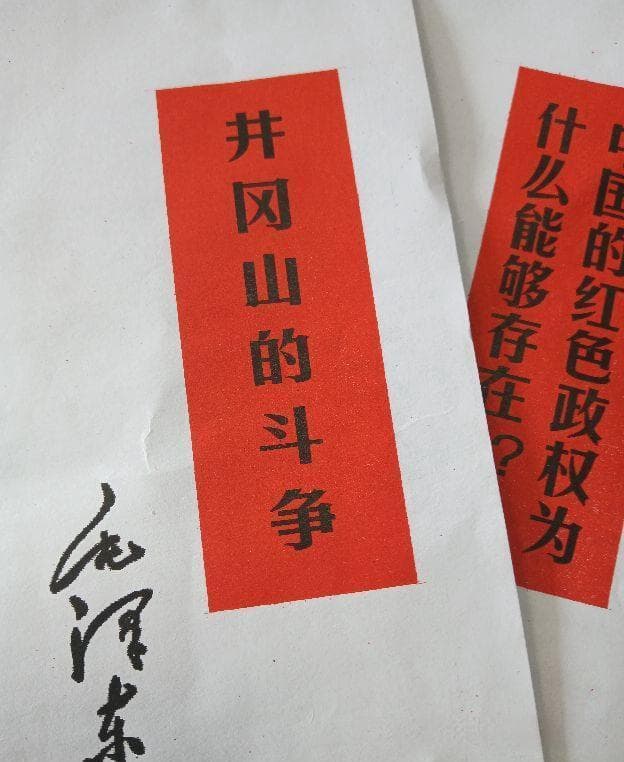 井冈山的斗争
毛泽东
中国的红色政权为
什么能够存在？